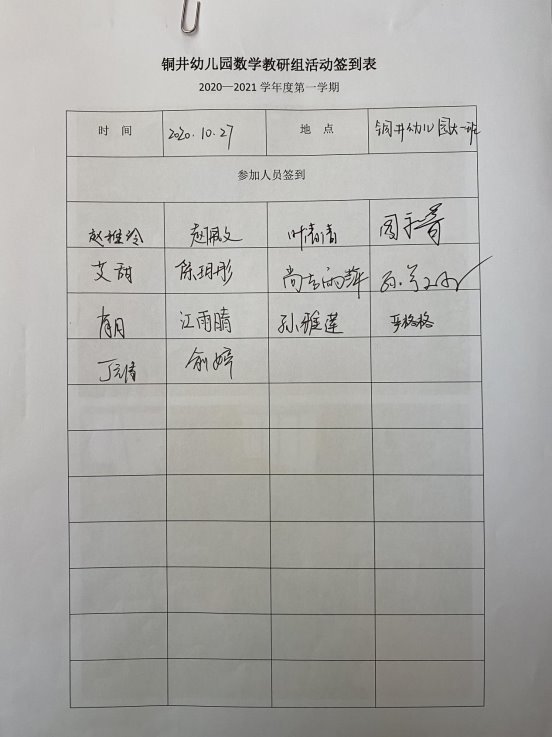 铜井幼儿园数学教研组活动签到表
2020—2021 学年度第一学期
时 间 2020.10.27 地 点 铜井幼儿园大一班
参加人员签到
赵雅玲 赵佩文 叶青青
艾甜 陈玥彤
肖月 江雨晴 孙雅莲 严格格
丁文倩 俞婷